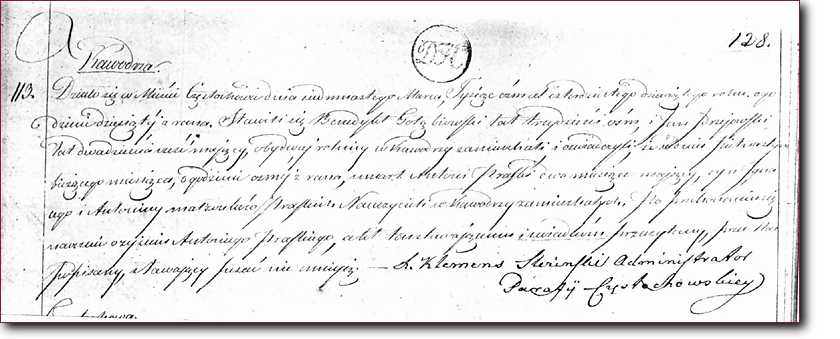 128.
Kawodrza.
113. Działo się w Mieście Częstochowie dnia siedmnastego Marca, Tysiąc ośmset czterdziestego dziewiątego roku, o go
dzinie dziesiątej z rana. Stawili się Benedykt lat trzydzieści ośm, i Jan
lat dwadzieścia sześć mający, obydwaj rolnicy w Kawodrzy zamieszkali i oświadczyli, że w dniu
bieżącego miesiąca, o godzinie ósmej z rana, umarł Antoni dwa miesiące mający, syn Jana
ego i Antoniny małżonków Nauczyciela w Kawodrzy zamieszkałych. Po przekonaniu się
naocznie o zejściu Antoniego Akt ten stawającym i świadkom przeczytany, przez Nas
podpisany, stawający pisać nie umieją. — X. Klemens Administrator
Parafij Częstochowskiey